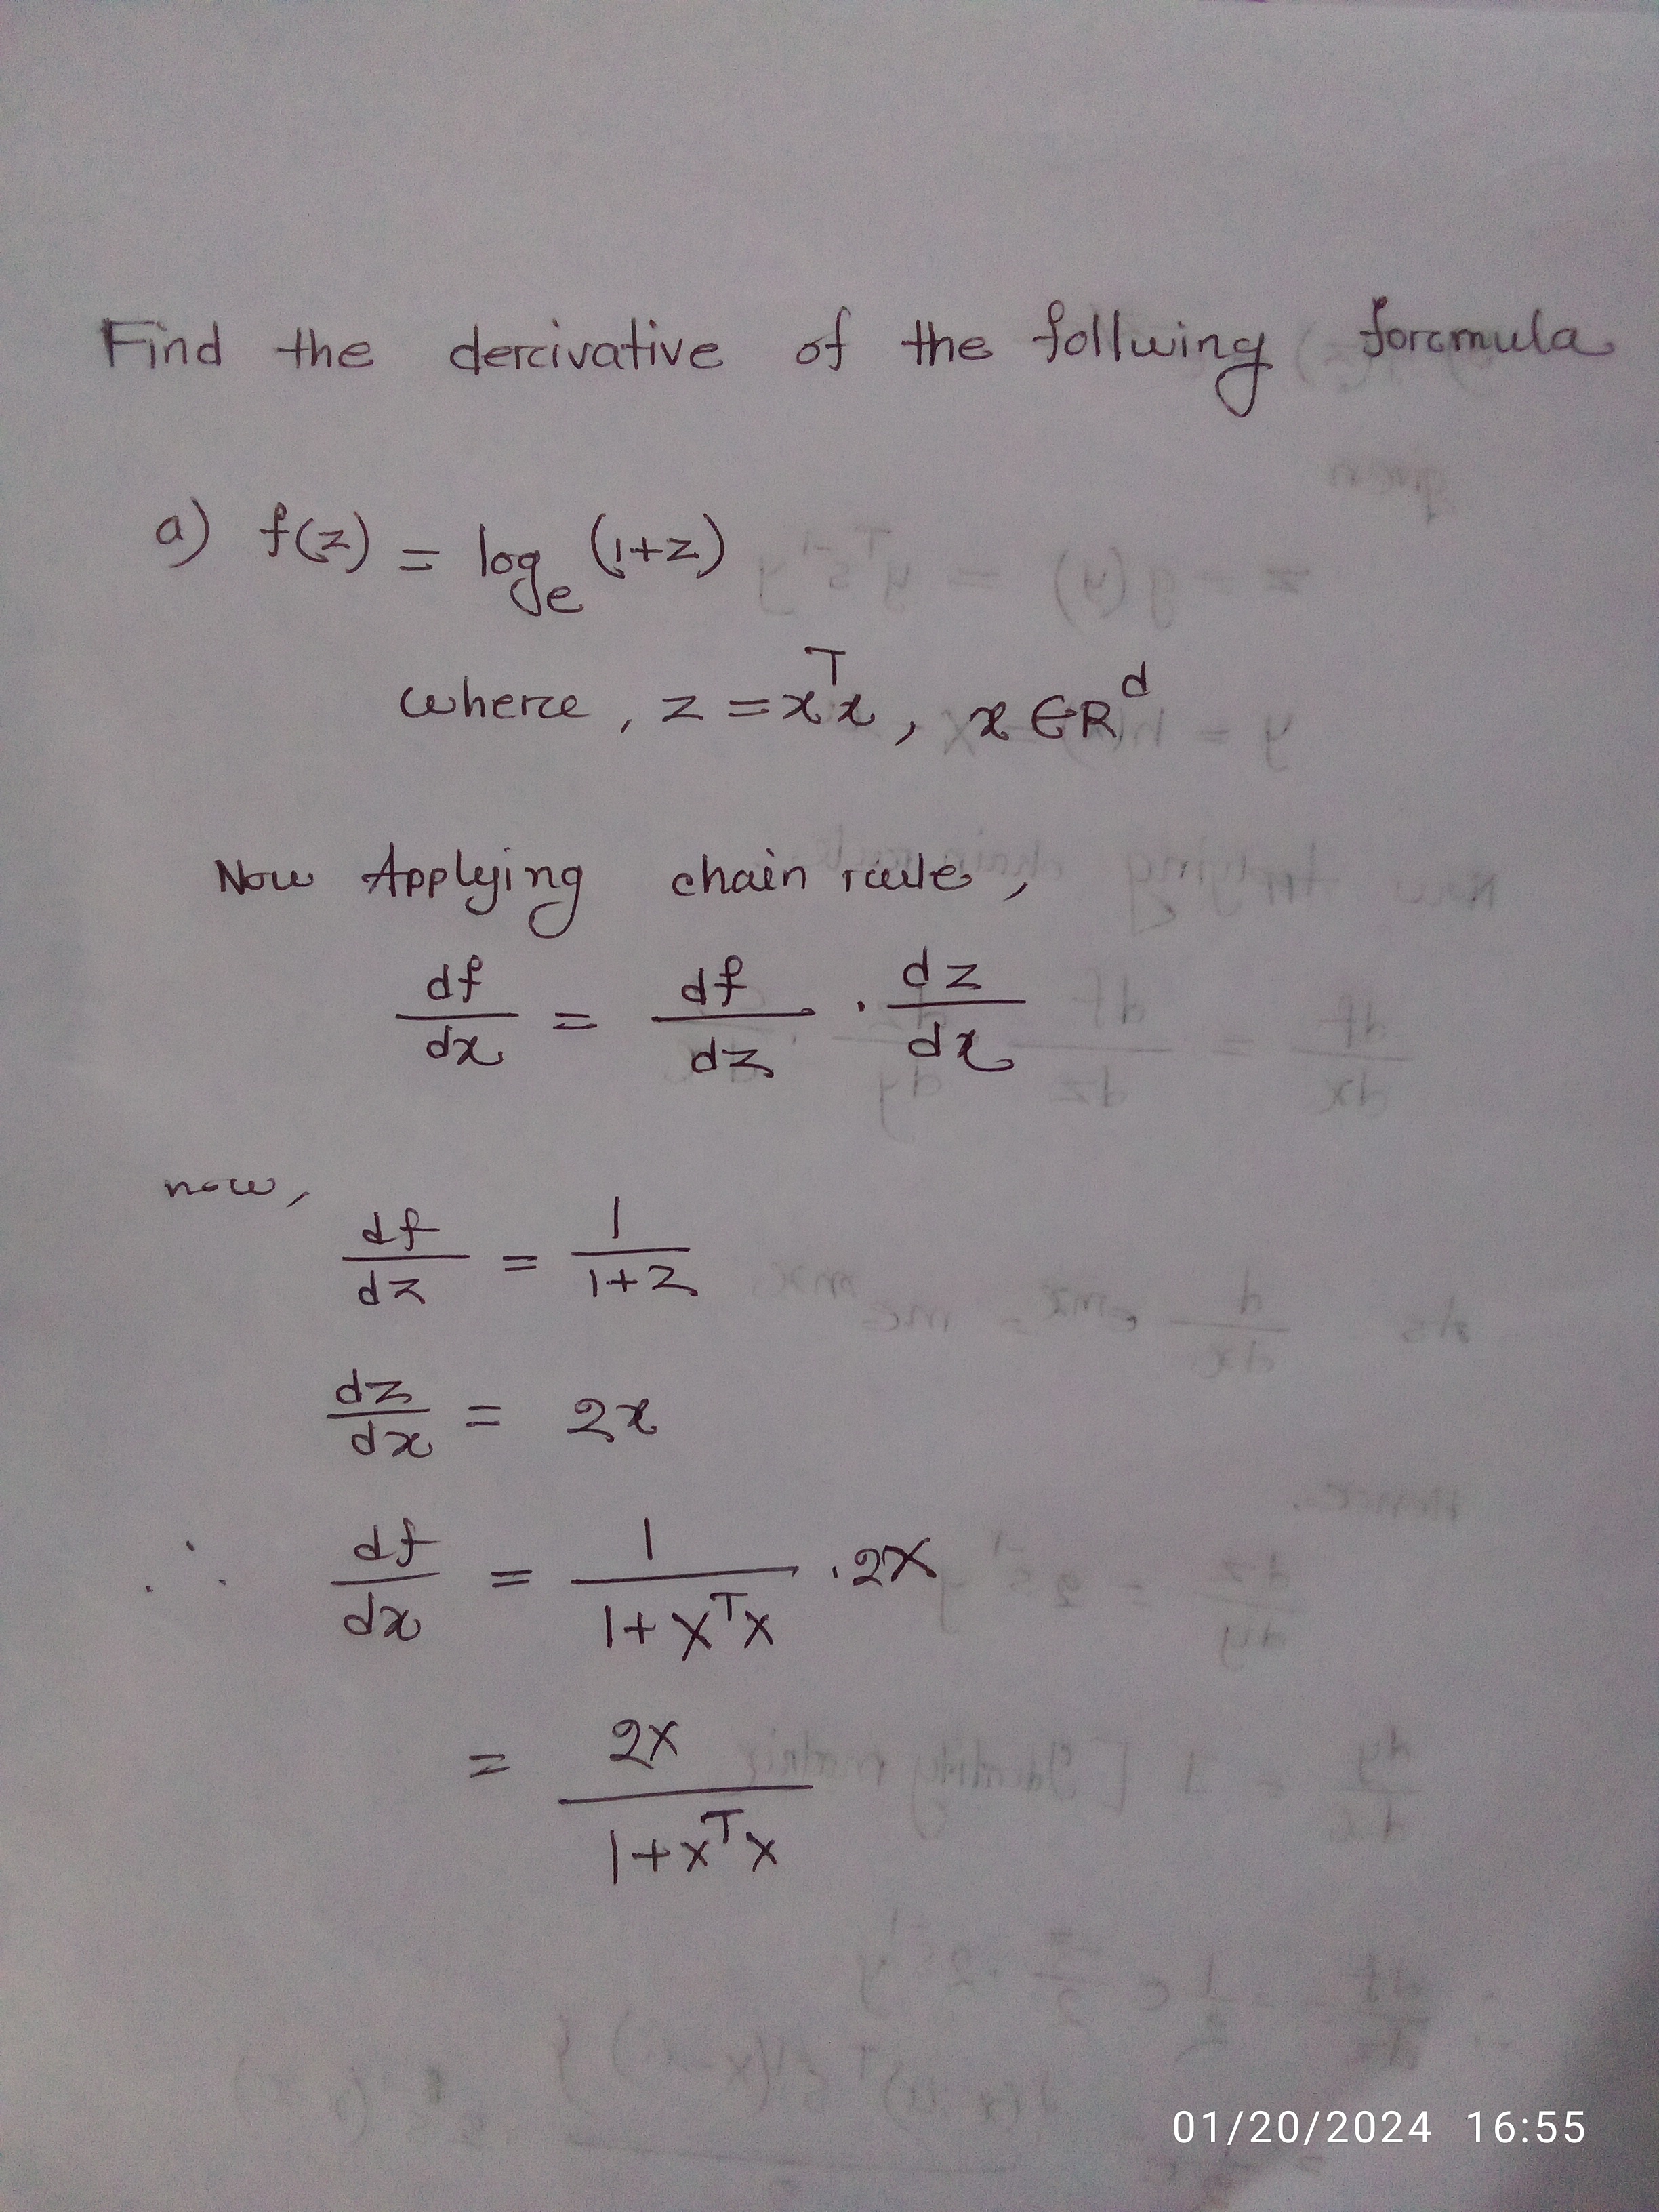 Find the dercivative of the follwing forcmula
a) f(z) = log_e (1+z)
wherce, z = x^T x, x ∈ R^d
Now Applying chain rule,
df/dx = df/dz . dz/dx
now,
df/dz = 1/(1+z)
dz/dx = 2x
∴ df/dx = 1/(1+x^T x) . 2x
= 2x/(1+x^T x)
01/20/2024 16:55